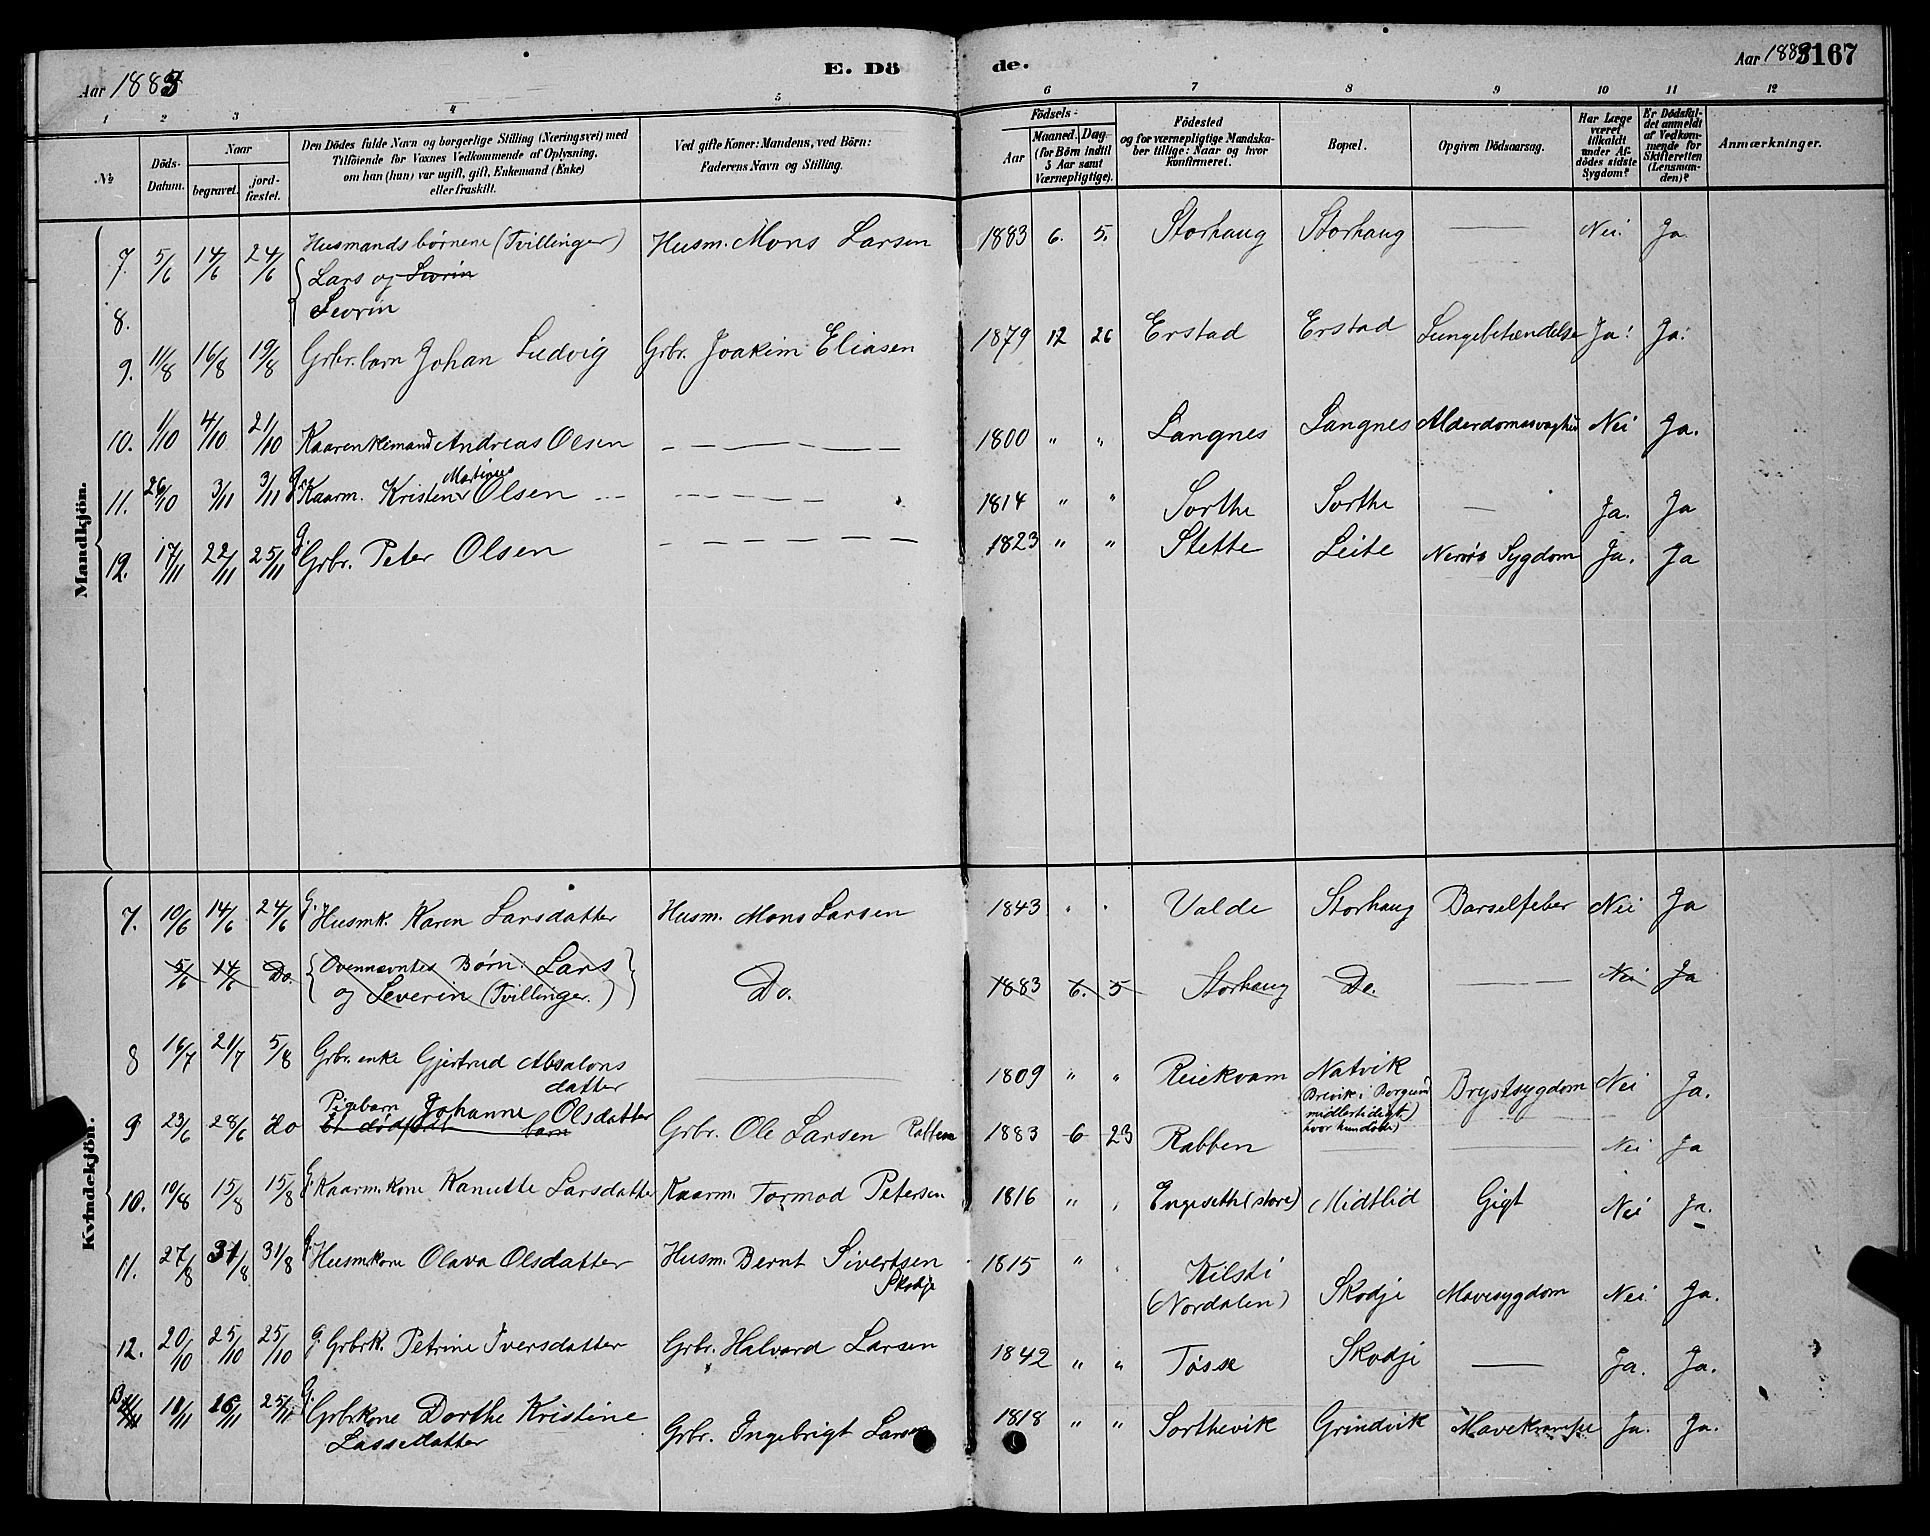 Aar 1883
E. Dö
de.
Aar 1883
167
1 2 3 4 5 6 7 8 9 10 11 12
No
Döds-Datum.
Naar
begravet.
jord-fæstet.
Den Dödes fulde Navn og borgerlige Stilling (Næringsvei) med
Tilföiende for Voxnes Vedkommende af Oplysning,
om han (hun) var ugift, gift, Enkemand (Enke)
eller fraskilt.
Ved gifte Koner: Mandens, ved Börn:
Faderens Navn og Stilling.
Födsels-
Aar
Maaned. Dag.
(for Börn indtil
5 Aar samt
Værnepligtige).
Födested
og for værnepligtige Mandska-
ber tillige: Naar og hvor
konfirmeret.
Bopæl.
Opgiven Dödsaarsag.
Har Læge
været
tilkaldt
under Af-
dödes sidste
Sygdom?
Er Dödsfal-
det anmeldt
af Vedkom-
mende for
Skifteretten
(Lensman-
den)?
Anmærkninger.
Mandkjön.
7. 5/6 14/6 24/6 Husmandsbørnene (Tvillinger) Husm. Mons Larsen 1883 6. 5. Storhaug Storhaug — Nei. Ja.
Lars og Sevrin
8. Sevrin
9. 11/8 16/8 19/8 Grbr. barn Johan Ludvig Grbr. Joakim Eliasen 1879 12 26 Erstad Erstad Lungebetændelse Ja! Ja!
10. 1/10 4/10 21/10 Kaarenkemand Andreas Olsen — — — — 1800 " " Langnes Langnes Alderdomssvaghed Nei Ja.
Martinus
11. 26/10 3/11 3/11 G. Kaarm. Kristen Olsen — — — — 1814 " " Sorthe Sorthe — Ja. Ja
12. 17/11 22/11 25/11 G. Grbr. Peter Olsen — — — — — 1823 " " Stette Leite Nervøs Sygdom Ja. Ja
Kvindekjön.
7. 10/6 14/6 24/6 G. Husmk. Karen Larsdatter Husm. Mons Larsen 1843 " " Valde Storhaug Barselfeber Nei Ja
5/6 14/6 Do. Ovennævntes Børn: Lars Do. 1883 6. 5 Storhaug Do. — Nei Ja
og Severin (Tvillinger.)
8 16/7 21/7 5/8 Grbr. enke Gjertrud Absalons — 1809 " " Reiekvam Natvik Brystsygdom Nei Ja.
datter
(Brevik i Borgund
midlertidigt
hvor hun døde)
Pigebarn Johanne Olsdatter
9 23/6 28/6 Do et dødfødt barn Grbr. Ole Larsen Rabben 1883 6 23 Rabben — — Nei Ja
10. 10/8 15/8 15/8 G. Kaarm. kone Kanutte Larsdatter Kaarm. Tormod Petersen 1816 " " Engesette (store) Midtlid Gigt Nei Ja.
11. 27/8 31/8 31/8 G. Husmkone Olava Olsdatter Husm. Bernt Sivertsen 1815 " " Kilsti
Skodje
(Nordalen) Skodje Mavesygdom Nei Ja.
12. 20/10 25/10 25/10 G. Grbrk. Petrine Iversdatter Grbr. Halvard Larsen 1842 " " Tøsse Skodje — Ja. Ja.
13 11/11 16/11 25/11 G. Grbrkone Dorthe Kristine Grbr. Ingebrigt Larsen 1818 " " Sorthevik Grindvik Mavekrampe Ja. Ja.
Lassedatter